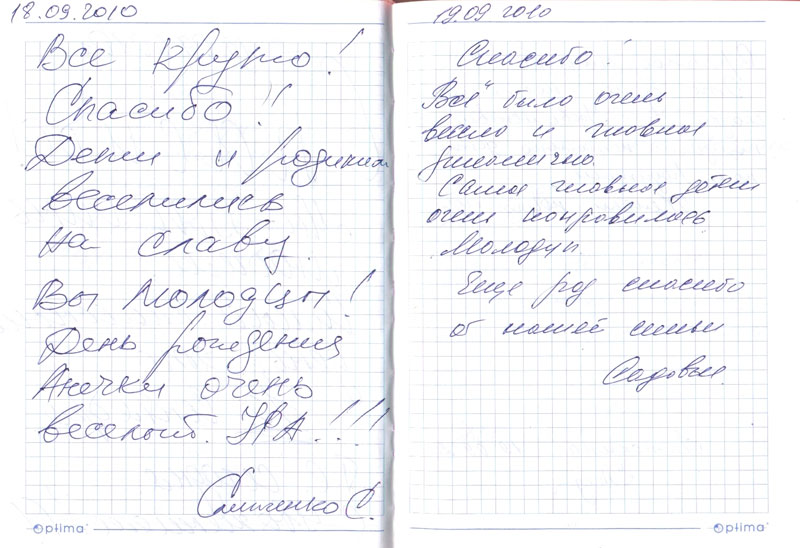 18.09.2010
Все круто!
Спасибо!!
Дети и родители
веселились
на славу.
Вы молодцы!
День рождения
Анечки очень
веселый. УРА!!!
С.
Optima
19.09 2010
Спасибо!
Всё было очень
весело и главное
Самое главное детям
очень понравилось
Молодцы.
Еще раз спасибо
от нашей семьи
Optima